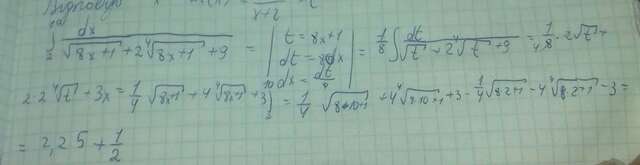 10 ∫ 2 dx / √8x+1 + 2 ⁴√8x+1 + 9 = | t = 8x+1 dt = 8dx dx = dt/8 | = 1/8 ∫ dt / √t + 2 ⁴√t + 9 = 1/8 · 2√t +
2·2 ⁴√t + 3x = 1/4 √8x+1 + 4 ⁴√8x+1 + 3 |10 2 = 1/4 √8·10+1 + 4 ⁴√8·10+1 + 3 - 1/4 √8·2+1 - 4 ⁴√8·2+1 - 3 =
= 2,25 + 1/2